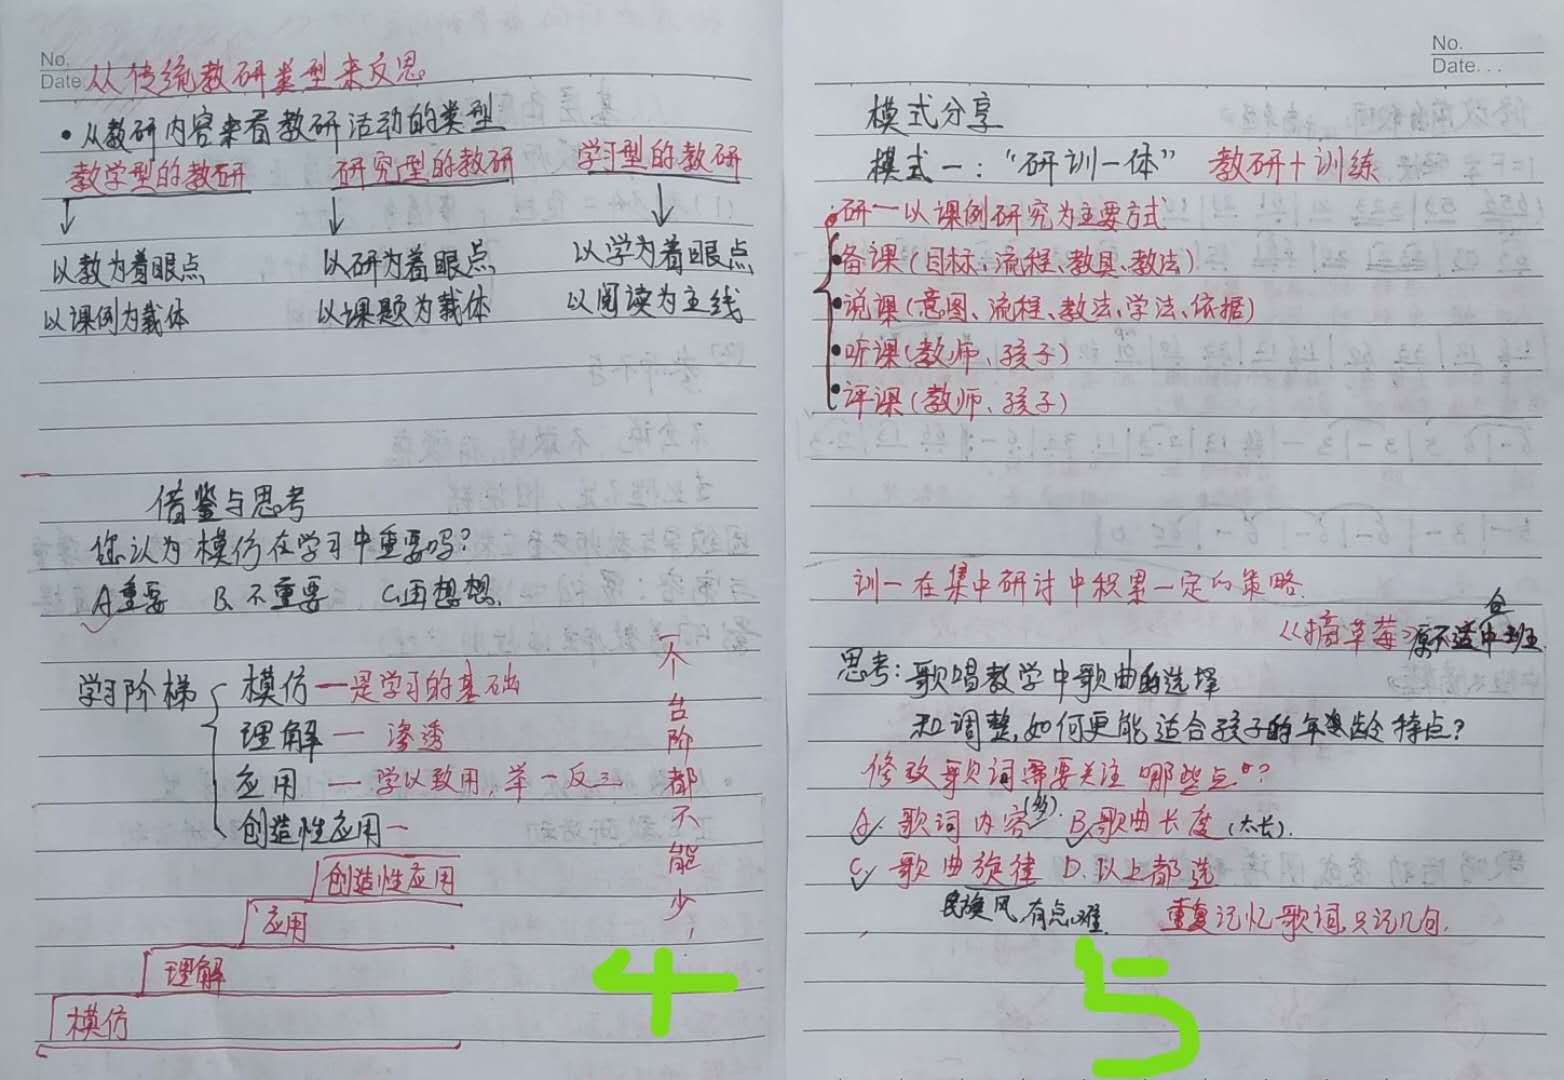 No.
Date 从传统教研类型来反思
• 从教研内容来看教研活动的类型
教学型的教研 研究型的教研 学习型的教研
以教为着眼点 以研为着眼点 以学为着眼点
以课例为载体 以课题为载体 以阅读为主线
借鉴与思考
您认为模仿在学习中重要吗?
A.重要 B.不重要 C.再想想.
学习阶梯
模仿一是学习的基础
理解一 渗透
应用 一 学以致用,举一反三
创造性应用一
一个台阶都不能少,
创造性应用
应用
理解
模仿
4
No.
Date...
模式分享
模式一:“研训一体” 教研+训练
研一以课例研究为主要方式
•备课(目标、流程、教具、教法)
•说课(意图、流程、教法、学法、依据)
•听课(教师、孩子)
•评课(教师、孩子)
训一在集中研讨中积累一定的策略.
《摘草莓》原不适合中班.
思考:歌唱教学中歌曲的选择
和调整,如何更能适合孩子的年龄特点?
修改歌词需要关注哪些点?
A. 歌词内容 B.歌曲长度(太长).
C. 歌曲旋律 D.以上都选
民族风,有点难. 重复记忆歌词,只记几句.
5